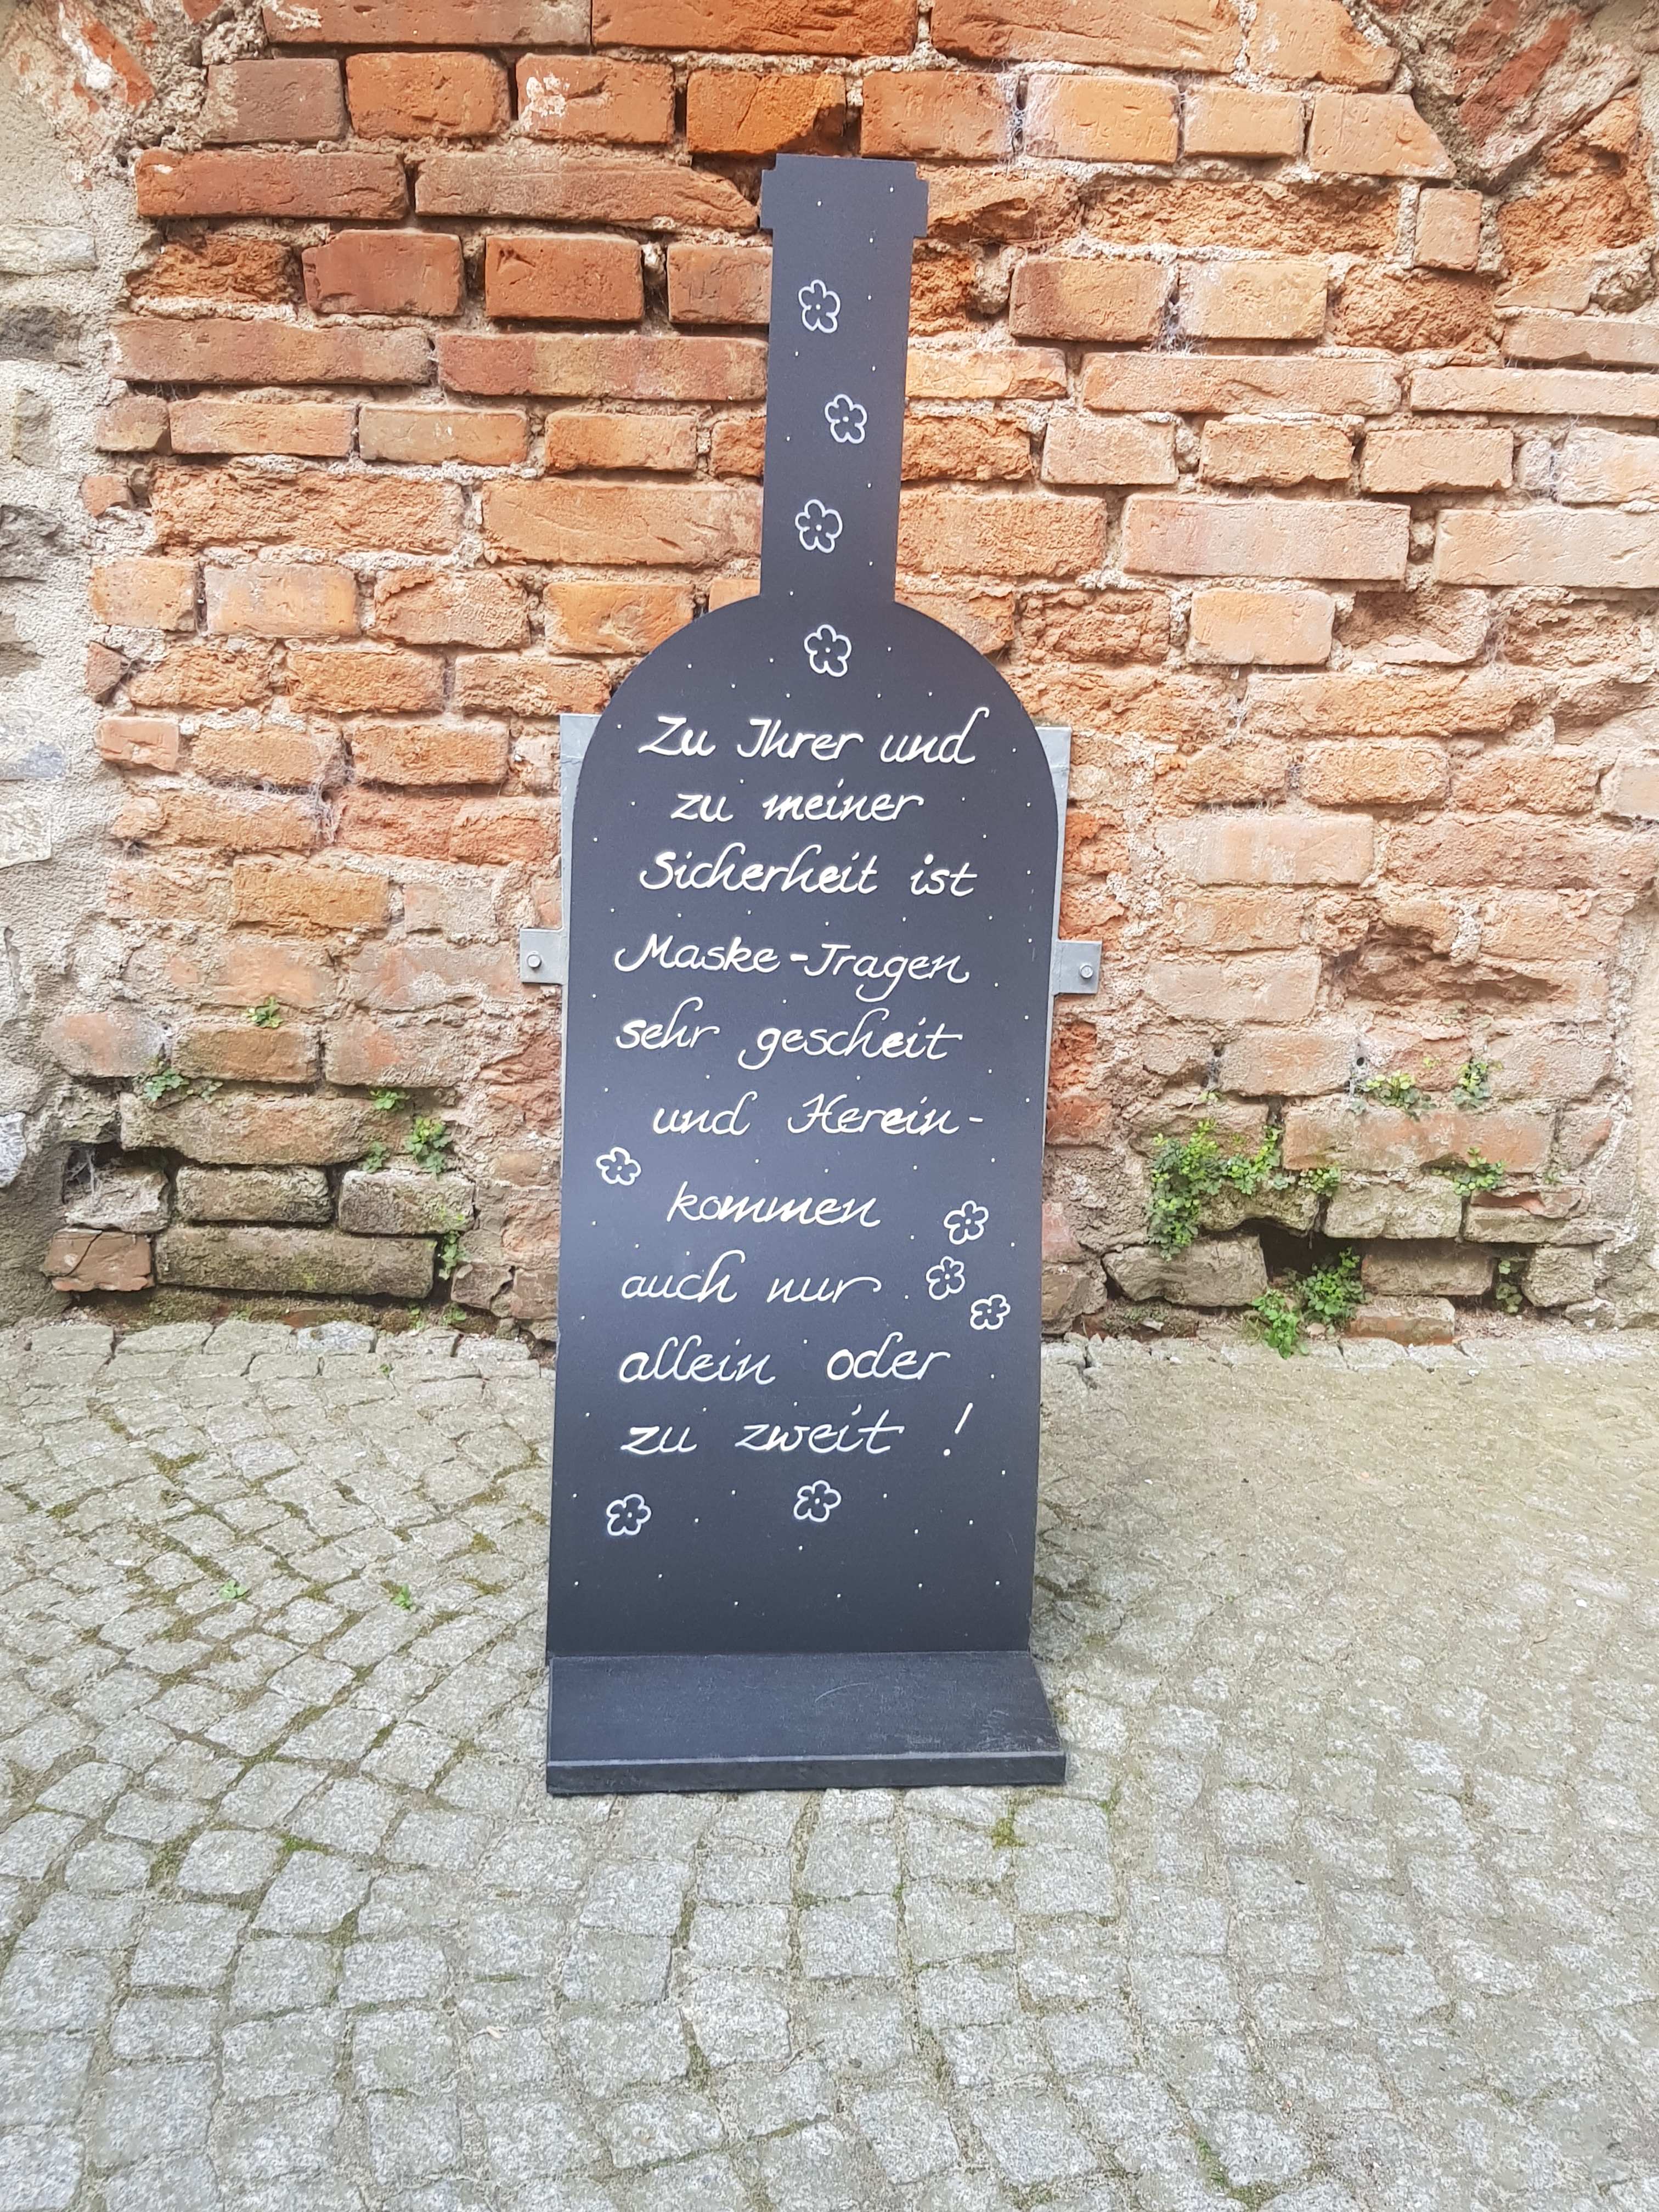 Zu Ihrer und
zu meiner
Sicherheit ist
Maske-Tragen
sehr gescheit
und Herein-
kommen
auch nur
allein oder
zu zweit !